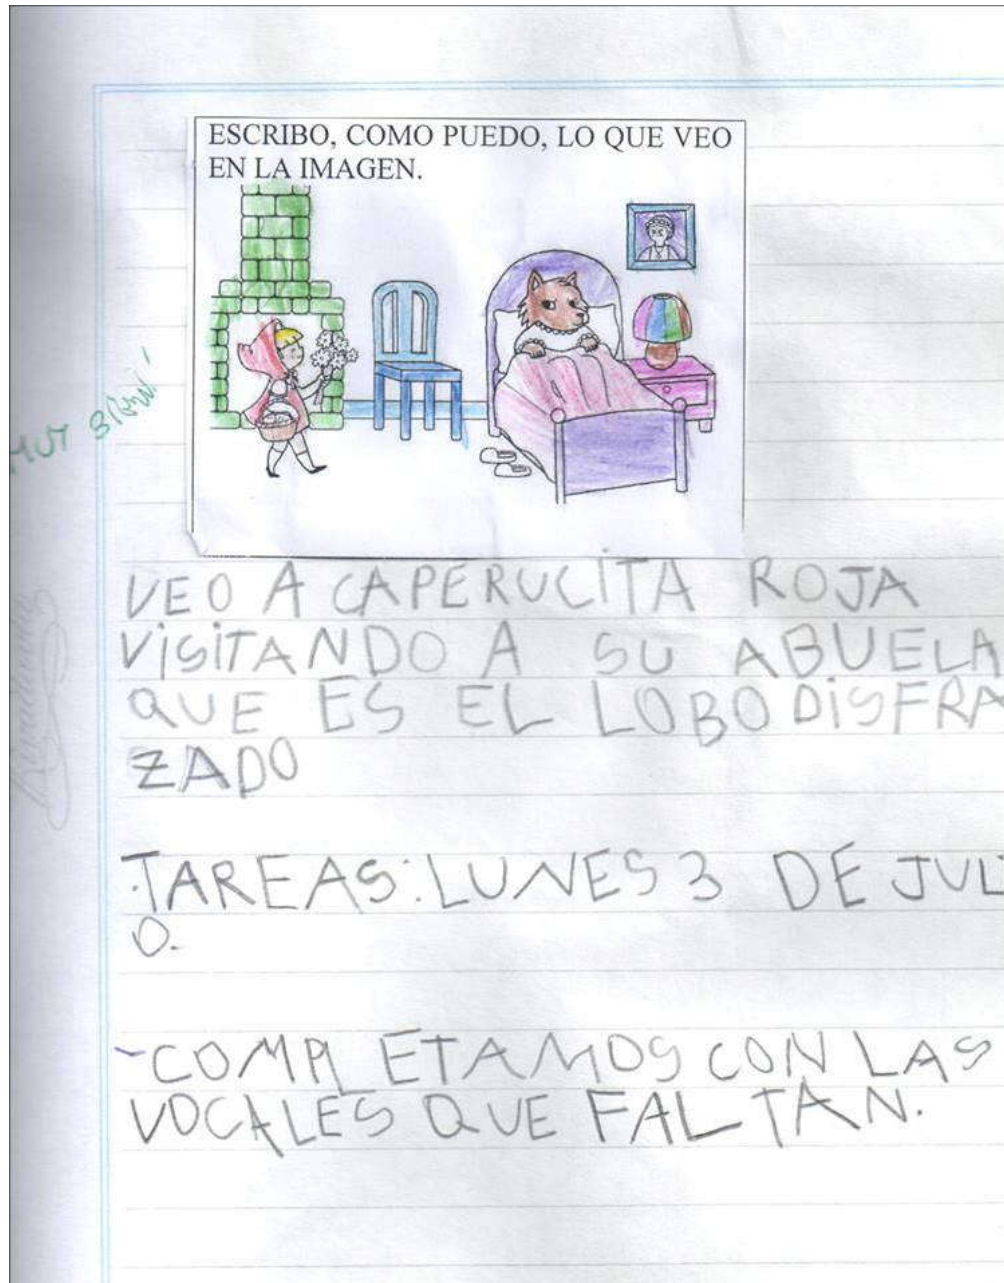 ESCRIBO, COMO PUEDO, LO QUE VEO
EN LA IMAGEN.
MUY BIEN!
VEO A CAPERUCITA ROJA
VISITANDO A SU ABUELA
QUE ES EL LOBO DISFRA
ZADO
TAREAS: LUNES 3 DE JUL
O.
-COMPLETAMOS CON LAS
VOCALES QUE FALTAN.